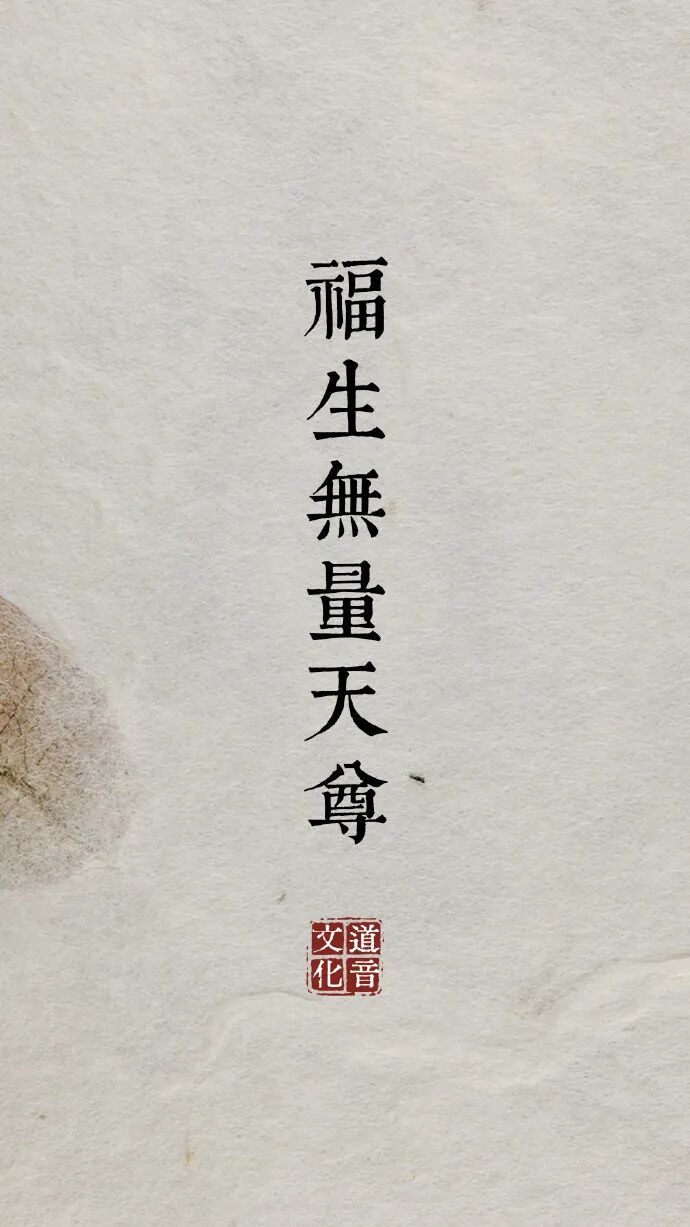 福生無量天尊
道音
文化